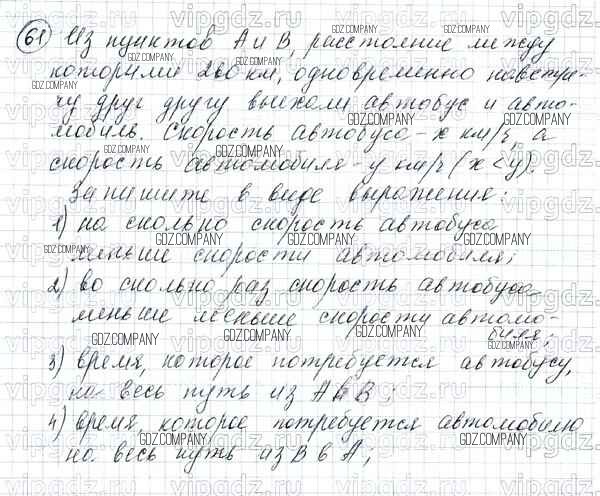 61 Из пунктов А и В, расстояние между
которыми 200 км, одновременно навстре-
чу друг другу выехали автобус и авто-
мобиль. Скорость автобуса - x км/ч, а
скорость автомобиля - y км/ч (x < y).
Запишите в виде выражения:
1) на сколько скорость автобуса
меньше скорости автомобиля;
2) во сколько раз скорость автобуса
меньше меньше скорости автомо-
биля;
3) время, которое потребуется автобусу,
на весь путь из А в В;
4) время, которое потребуется автомобилю
на весь путь из В в А;